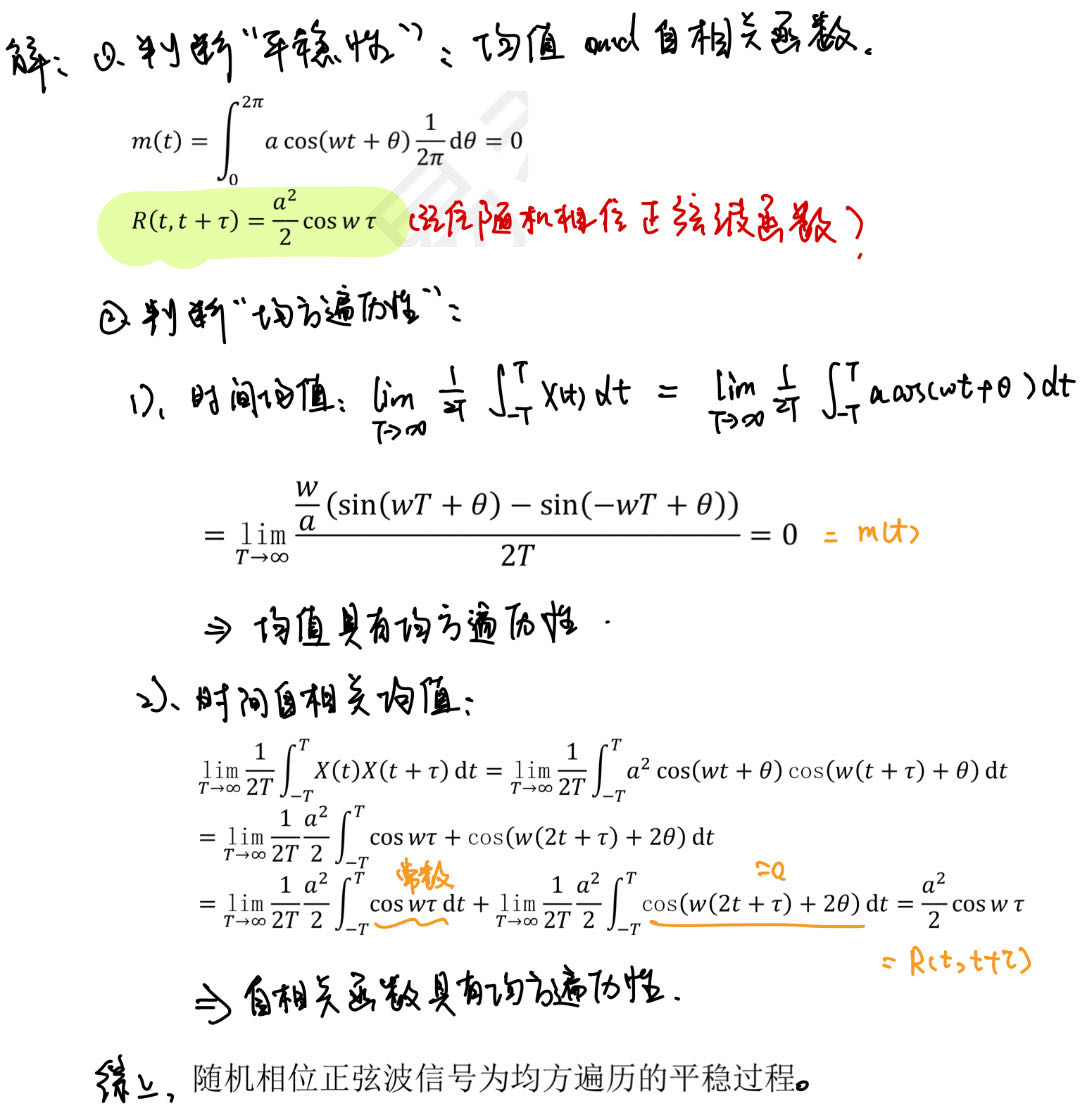 解：①、判断“平稳性”：均值 and 自相关函数。
m(t) = ∫_0^{2π} a cos(wt + θ) \frac{1}{2π} dθ = 0
R(t, t + τ) = \frac{a^2}{2} cos w τ (记住随机相位正弦波函数)
② 判断“均方遍历性”：
1)、时间均值：lim_{T→∞} \frac{1}{2T} ∫_{-T}^{T} X(t) dt = lim_{T→∞} \frac{1}{2T} ∫_{-T}^{T} a cos(wt+θ) dt
= lim_{T→∞} \frac{\frac{w}{a}(sin(wT + θ) − sin(−wT + θ))}{2T} = 0 = m(t)
⇒ 均值具有均方遍历性.
2)、时间自相关均值：
lim_{T→∞} \frac{1}{2T} ∫_{-T}^{T} X(t)X(t + τ) dt = lim_{T→∞} \frac{1}{2T} ∫_{-T}^{T} a^2 cos(wt + θ) cos(w(t + τ) + θ) dt
= lim_{T→∞} \frac{1}{2T} \frac{a^2}{2} ∫_{-T}^{T} cos wτ + cos(w(2t + τ) + 2θ) dt
常数 =0
= lim_{T→∞} \frac{1}{2T} \frac{a^2}{2} ∫_{-T}^{T} cos wτ dt + lim_{T→∞} \frac{1}{2T} \frac{a^2}{2} ∫_{-T}^{T} cos(w(2t + τ) + 2θ) dt = \frac{a^2}{2} cos w τ
= R(t, t+τ)
⇒ 自相关函数具有均方遍历性.
综上，随机相位正弦波信号为均方遍历的平稳过程。